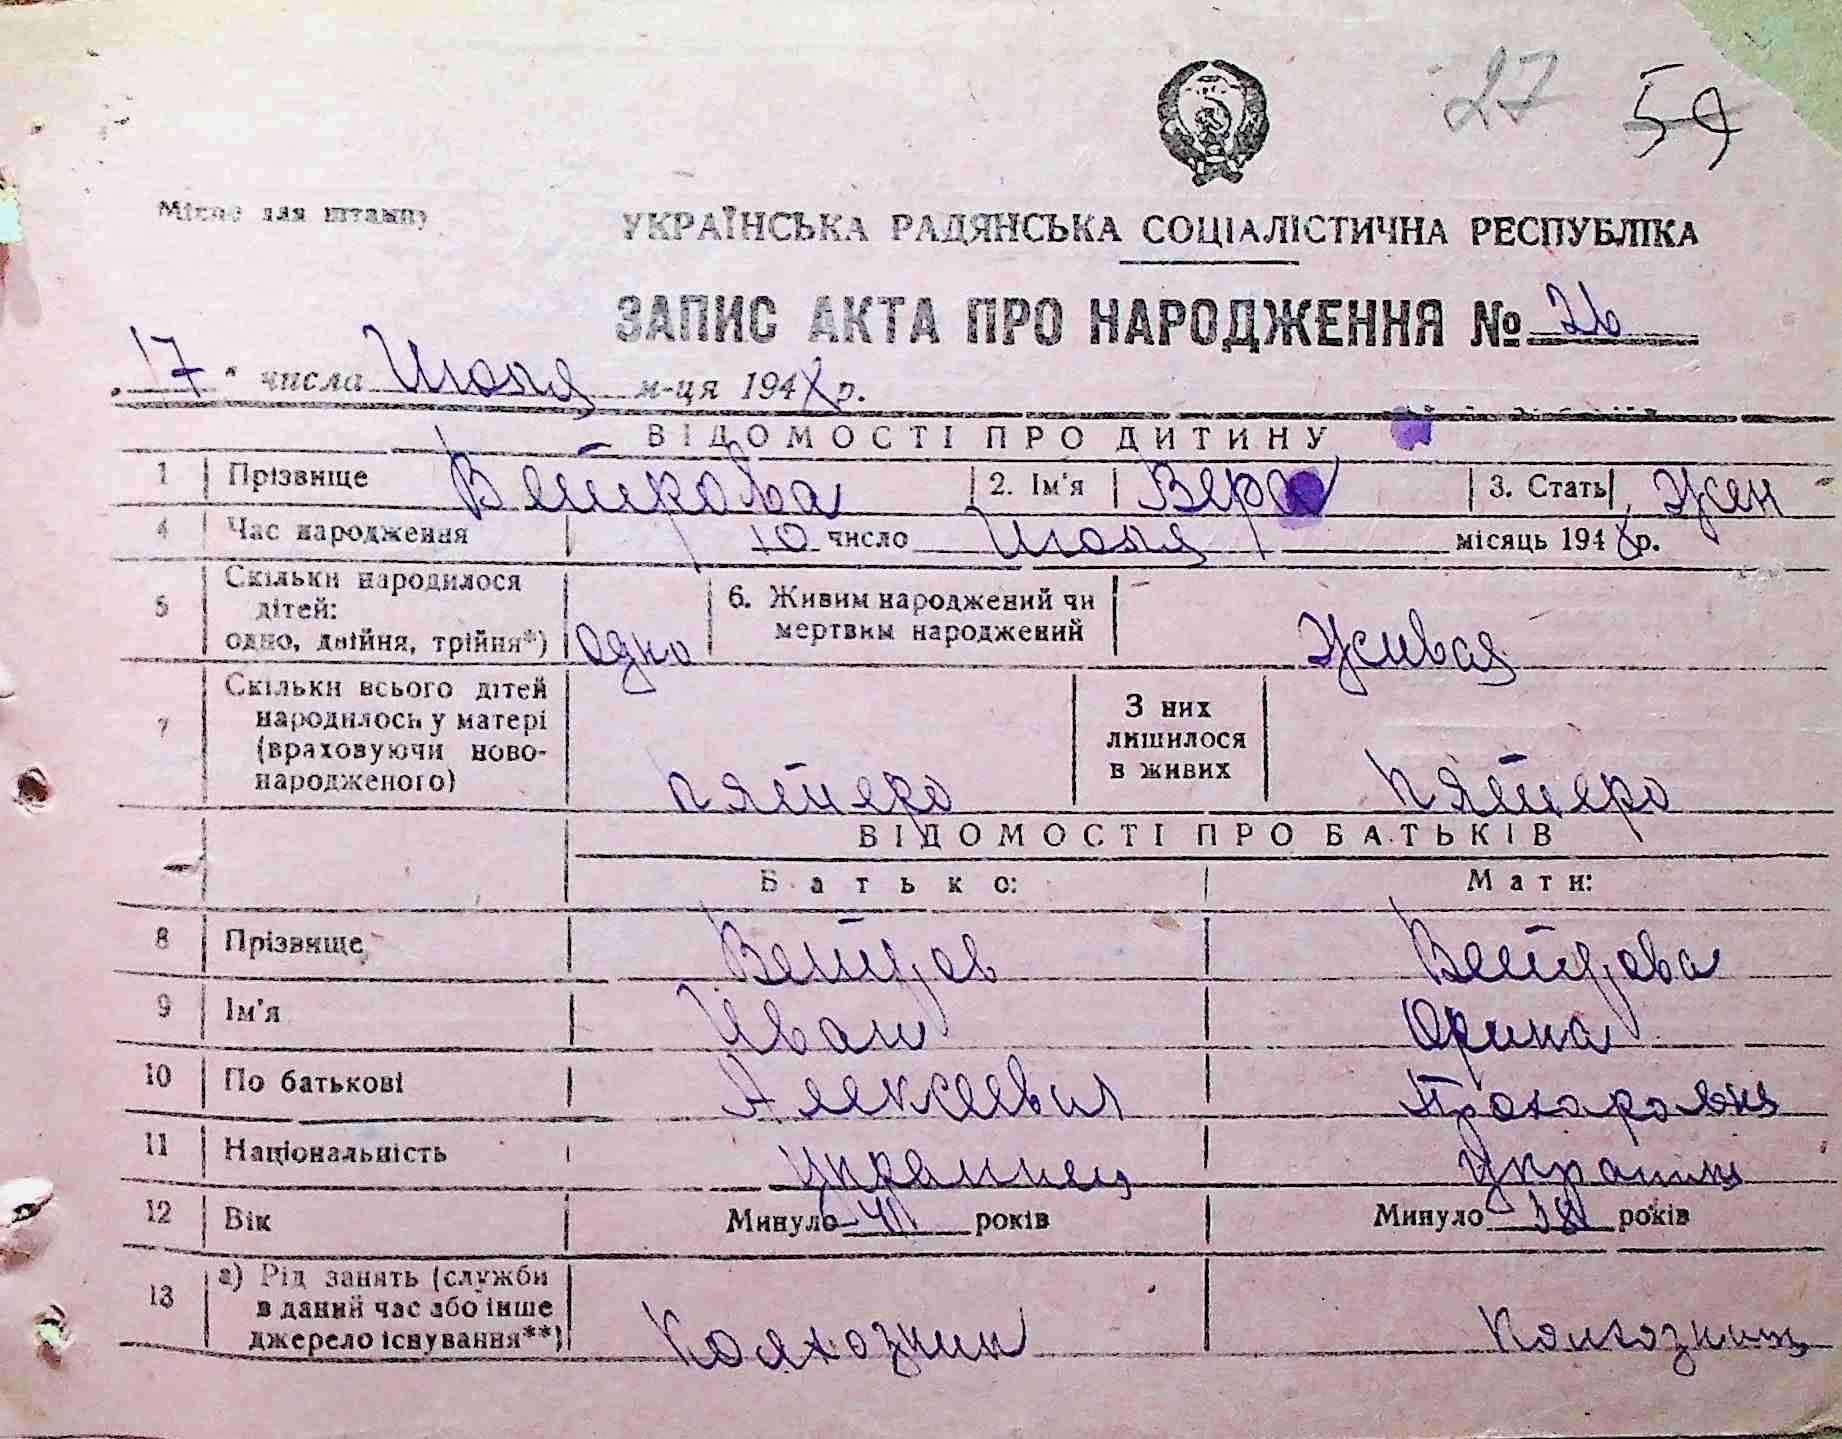 27 54
Місце для штампу
УКРАЇНСЬКА РАДЯНСЬКА СОЦІАЛІСТИЧНА РЕСПУБЛІКА
ЗАПИС АКТА ПРО НАРОДЖЕННЯ № 26
„17" числа Июля м-ця 194 р.
ВІДОМОСТІ ПРО ДИТИНУ
1 Прізвище Ветрова 2. Ім'я Вера 3. Стать Жен
4 Час народження 10 число Июля місяць 194 р.
5 Скільки народилося
дітей:
одно, двійня, трійня*) Одно 6. Живим народжений чи
мертвим народжений Живая
7 Скільки всього дітей
народилось у матері
(враховуючи ново-
народженого) пятеро З них
лишилося
в живих пятеро
ВІДОМОСТІ ПРО БАТЬКІВ
Батько: Мати:
8 Прізвище Ветров Ветрова
9 Ім'я Иван Орина
10 По батькові Алексеевич
11 Національність Украинец Украинц
12 Вік Минуло 41 років Минуло 38 років
13 а) Рід занять (служби
в даний час або інше
джерело існування**) Колхозник Колхозниц